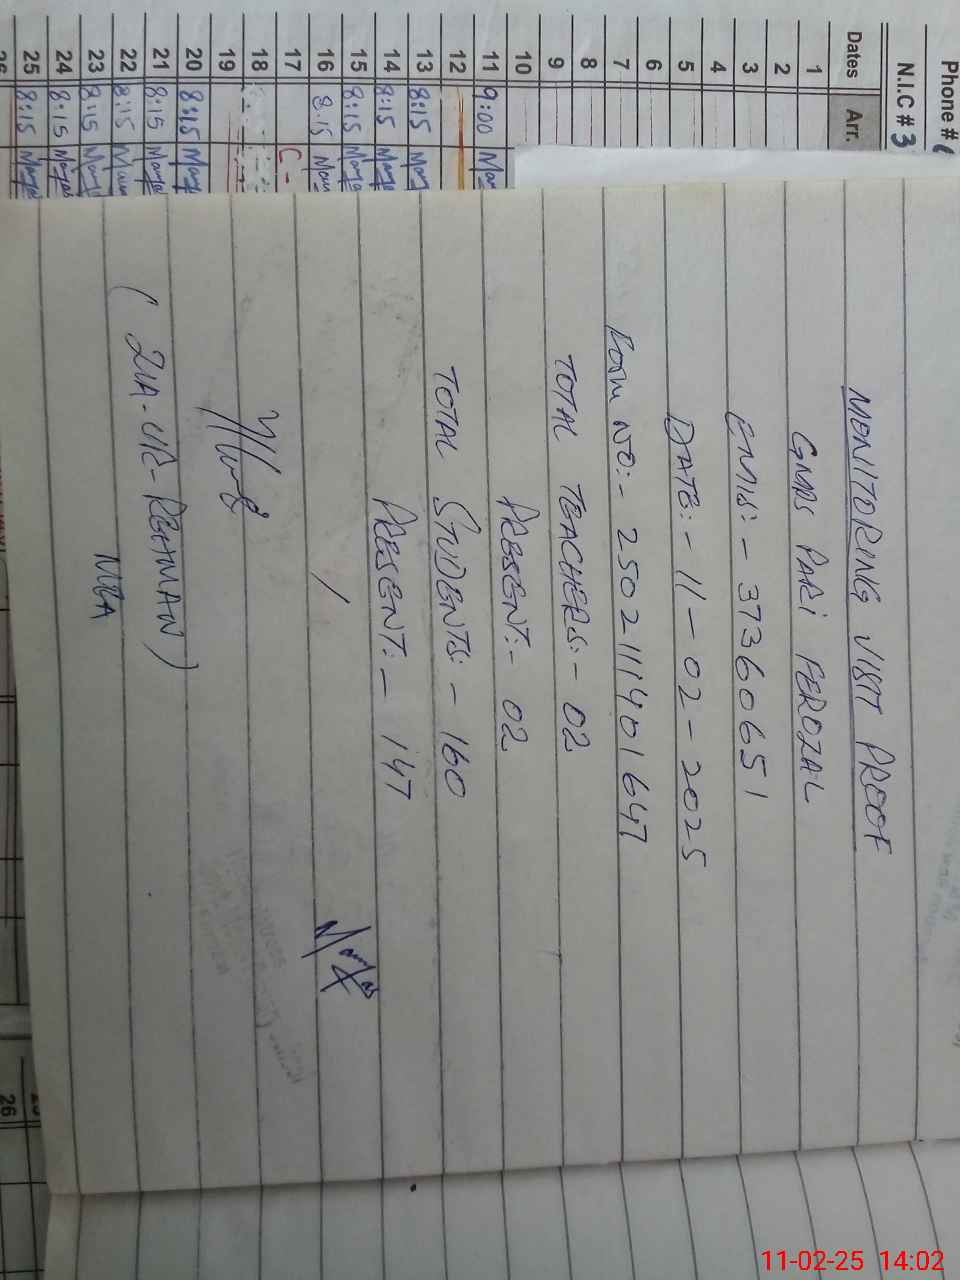 Phone #
N.I.C # 3
Dates Arr.
1
2
3
4
5
6
7
8
9
10
11 9:00
12
13 8:15
14 8:15
15 8:15
16 8:15
17 C-
18
19
20 8:15
21 8:15
22 8:15
23 8:15
24 8:15
25 8:15
26
MONITORING VISIT PROOF
GMPS PARI FEROZAL
EMIS:- 3736065 1
DATE:- 11-02-2025
FORM NO:- 250211140 1647
TOTAL TEACHERS:- 02
PRESENT:- 02
TOTAL STUDENTS:- 160
PRESENT:- 147
(ZIA-UR-REHMAN)
MEA
26
11-02-25 14:02